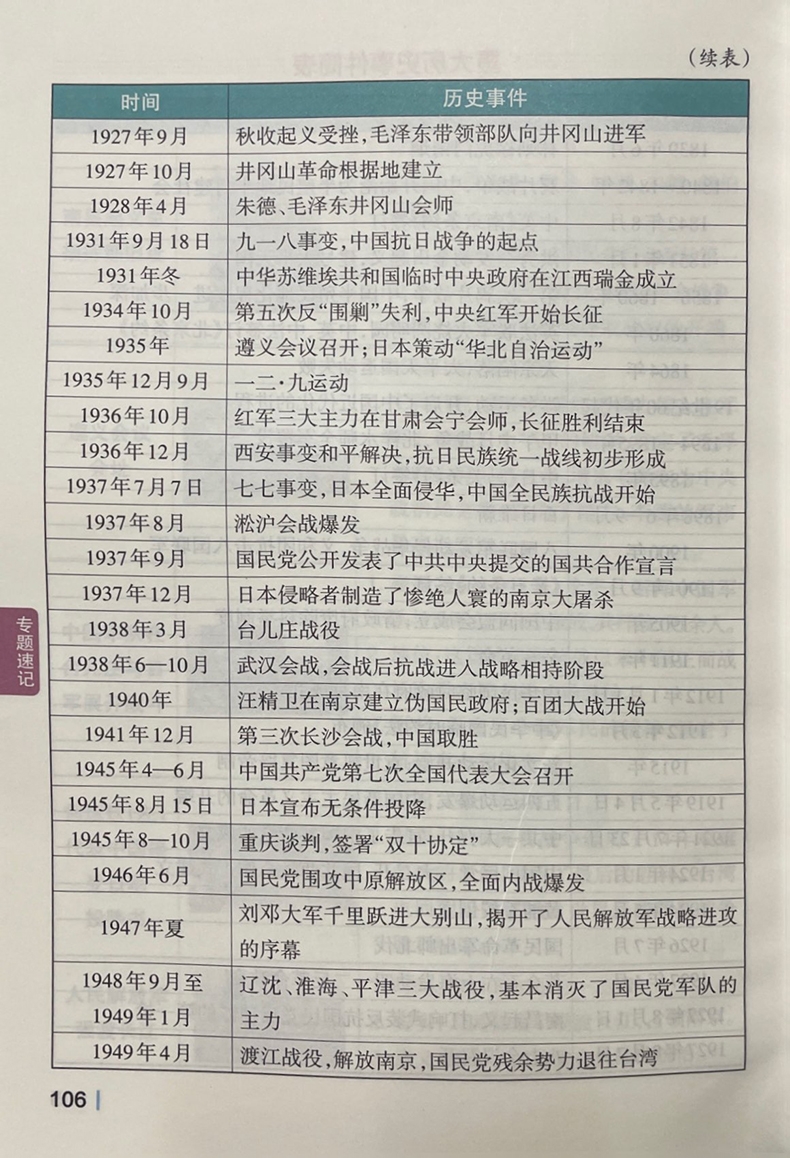 （续表）
时间 历史事件
1927年9月 秋收起义受挫，毛泽东带领部队向井冈山进军
1927年10月 井冈山革命根据地建立
1928年4月 朱德、毛泽东井冈山会师
1931年9月18日 九一八事变，中国抗日战争的起点
1931年冬 中华苏维埃共和国临时中央政府在江西瑞金成立
1934年10月 第五次反“围剿”失利，中央红军开始长征
1935年 遵义会议召开；日本策动“华北自治运动”
1935年12月9日 一二·九运动
1936年10月 红军三大主力在甘肃会宁会师，长征胜利结束
1936年12月 西安事变和平解决，抗日民族统一战线初步形成
1937年7月7日 七七事变，日本全面侵华，中国全民族抗战开始
1937年8月 淞沪会战爆发
1937年9月 国民党公开发表了中共中央提交的国共合作宣言
1937年12月 日本侵略者制造了惨绝人寰的南京大屠杀
1938年3月 台儿庄战役
1938年6—10月 武汉会战，会战后抗战进入战略相持阶段
1940年 汪精卫在南京建立伪国民政府；百团大战开始
1941年12月 第三次长沙会战，中国取胜
1945年4—6月 中国共产党第七次全国代表大会召开
1945年8月15日 日本宣布无条件投降
1945年8—10月 重庆谈判，签署“双十协定”
1946年6月 国民党围攻中原解放区，全面内战爆发
1947年夏 刘邓大军千里跃进大别山，揭开了人民解放军战略进攻
的序幕
1948年9月至 辽沈、淮海、平津三大战役，基本消灭了国民党军队的
1949年1月 主力
1949年4月 渡江战役，解放南京，国民党残余势力退往台湾
专题速记
106